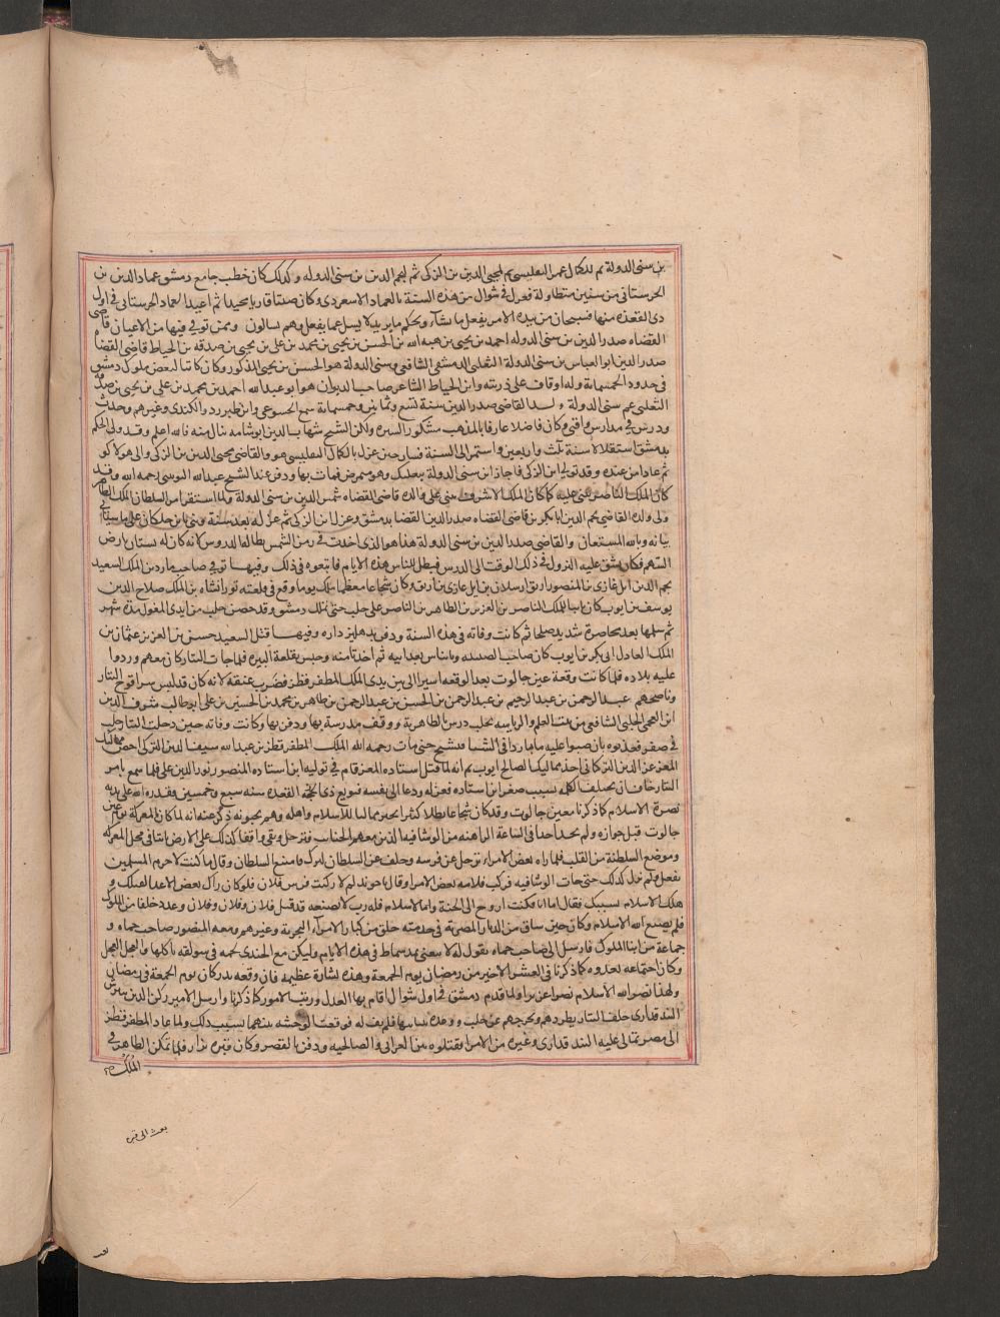 بن سنى الدولة ثم للكمال عمر التفليسى ثم لمحيى الدين بن الزكى ثم لنجم الدين بن سنى الدوله وكذلك كان خطيب جامع دمشق عماد الدين بن
الحرستانى من سنين متطاولة فعزل فى شوال من هذه السنة بالعماد الاسعردى وكان صيتا قاريا مجيدا ثم اعيد العماد الحرستانى فى اول
ذى القعده منها فسبحان من بيده الامر يفعل ما يشاء ويحكم ما يريد لا يسل عما يفعل وهم يسالون وممن توفي فيها من الاعيان قاضى
القضاه صدر الدين بن سنى الدوله احمد بن يحيى بن هبه الله بن الحسن بن يحيى بن محمد بن على بن يحيى بن صدقه بن الخياط قاضى القضاة
صدر الدين ابو العباس بن سنى الدولة التغلبى الدمشقى الشافعى وسنى الدولة هو الحسن بن يحيى المذكور وكان كاتبا لبعض ملوك دمشق
فى حدود الخمسمايه وله اوقاف على ذريته وابن الخياط الشاعر صاحب الديوان هو ابو عبد الله احمد بن محمد بن على بن يحيى بن صدقه
التغلبى عم سنى الدولة ولد القاضى صدر الدين سنة تسع وثمانين وخمسماية سمع الخشوعى وابن طبرزد والكندى وغيرهم وحدث
ودرس فى مدارس وافتى وكان فاضلا عارفا بالمذهب مشكور السيره ولكن الشيخ شهاب الدين ابو شامه ينال منه فالله اعلم وقد ولى الحكم
بدمشق استقلالا سنة ثلث واربعين واستمر الى السنة فسار حين عزل بالكمال التفليسى هو والقاضى محيى الدين بن الزكى والى هولاكو
ثم عادا من عنده وقد تولى ابن الزكى فاجاز ابن سنى الدولة ببعلبك وهو متمرض فمات بها ودفن عند الشيخ عبد الله اليونينى رحمه الله وقد
كان الملك الناصر يثنى عليه كما كان الملك الاشرف يثنى على والده قاضى القضاه شمس الدين بن سنى الدولة ولما استقر امر السلطان الملك الظاهر
ولى ولده القاضى نجم الدين ابا بكر بن قاضى القضاه صدر الدين القضا بدمشق وعزل ابن الزكى ثم عزله بعد سنة وولى بابن خلكان على ما سياتى
بيانه وبالله المستعان والقاضى صدر الدين بن سنى الدولة هذا هو الذى احدث فى زمن المشمش بطالة الدروس لانه كان له بستان بارض
السهم فكان يشق عليه النزول فى ذلك الوقت الى الدرس فبطل للناس هذه الايام فاتبعوه فى ذلك وفيها توفي صاحب ماردين الملك السعيد
نجم الدين ايل غازى بن المنصور ارتق ارسلان بن ايل غازى بن ارتق وكان شجاعا معظما ملك يوما وقع فى قلعته تورانشاه بن الملك صلاح الدين
يوسف بن ايوب كان نايبا للملك الناصر بن العزيز بن الظاهر بن الناصر على حلب حتى تملك دمشق وقد حصن حلب من ايدى المغول مدة شهر
ثم سلمها بعد محاصرة شديد صلحا ثم كانت وفاته فى هذه السنة ودفن بدهليز داره وفيها قتل السعيد حسن بن العزيز عثمان بن
الملك العادل ابى بكر بن ايوب كان صاحب الصبيبه وبانياس بعد ابيه ثم اخذتا منه وحبس بقلعة البيره فلما جات التتار كان معهم وردوا
عليه بلاده فلما كانت وقعة عين جالوت بعد الوقعه اسيرا الى بين يدى الملك المظفر قطز فضرب عنقه لانه كان قد لبس سراقوج التتار
وناصحهم عبد الرحمن بن عبد الرحيم بن عبد الرحمن بن الحسن بن عبد الرحمن بن طاهر بن محمد بن الحسين بن على ابو طالب شرف الدين
ابن العجمى الحلبى الشافعى من بيت العلم والرياسه بحلب درس بالظاهرية ووقف مدرسة بها ودفن بها وكانت وفاته حين دخلت التتار حلب
فى صفر فعذبوه بان صبوا عليه ماء باردا فى الشتا فتشنج حتى مات رحمه الله الملك المظفر قطز بن عبد الله سيف الدين التركى اخص مماليك
المعز عز الدين التركمانى احد مماليك الصالح ايوب ثم انه لما قتل استاده المعز قام فى توليه ابن استاده المنصور نور الدين على فلما سمع بامر
التتار خاف ان تختلف الكلمه بسبب صغر ابن استاده فعزله ودعا الى نفسه فبويع فى ذى القعده سنه سبع وخمسين وقدره الله على يديه
نصرة الاسلام كما ذكرنا بعين جالوت وقد كان شجاعا بطلا كثير الخير ممالئا للاسلام واهله وهم يحبونه ذكر عنه انه لما كان المعركة يوم عين
جالوت قتل جواده ولم يجد احدا فى الساعة الراهنه من الوشاقيه الذين معهم الجنايب فترجل وبقى واقفا كذلك على الارض ثابتا فى محل المعركه
وموضع السلطنة من القلب فلما راه بعض الامراء ترجل عن فرسه وحلف على السلطان ليركب فامتنع السلطان وقال ما كنت لاحرم المسلمين
نفعك ولم يزل كذلك حتى جات الوشاقيه فركب فلامه بعض الامرا وقال يا خوند لم لا ركبت فرس فلان فلو كان راك بعض الاعدا لقتلك و
هلك الاسلام بسببك فقال اما انا فكنت اروح الى الجنة واما الاسلام فله رب لا يضيعه قد قتل فلان وفلان وفلان وعدد خلقا من الملوك
فلم يضيع الله الاسلام وكان حين ساق من الديار المصرية فى خدمته خلق من كبار الامراء البحرية وغيرهم ومعه المنصور صاحب حماه و
جماعة من ابنا الملوك فارسل الى صاحب حماه يقول له لا تعتنى بمد سماط فى هذه الايام وليكن مع الجندى لحمه فى سولقه ياكلها والعجل العجل
وكان اجتماعه بعدوه كما ذكرنا فى العشر الاخير من رمضان يوم الجمعة وهذه بشارة عظيمه فان وقعه بدر كان يوم الجمعة فى رمضان
ولهذا نصر الله الاسلام نصرا عزيزا ولما قدم دمشق فى اول شوال اقام بها العدل ورتب الامور كما ذكرنا وارسل الامير ركن الدين بيبرس
البندقدارى خلف التتار يطردهم ويخرجهم عن حلب ووعده بنيابتها فلم يف له فوقعت الوحشه بينهما بسبب ذلك ولما عاد المظفر قطز
الى مصر تمالى عليه البندقدارى وغيره من الامرا فقتلوه بين الغرابى والصالحيه ودفن بالقصر وكان قبره يزار فلما تمكن الظاهر فى
الملك
بعث الى قبره